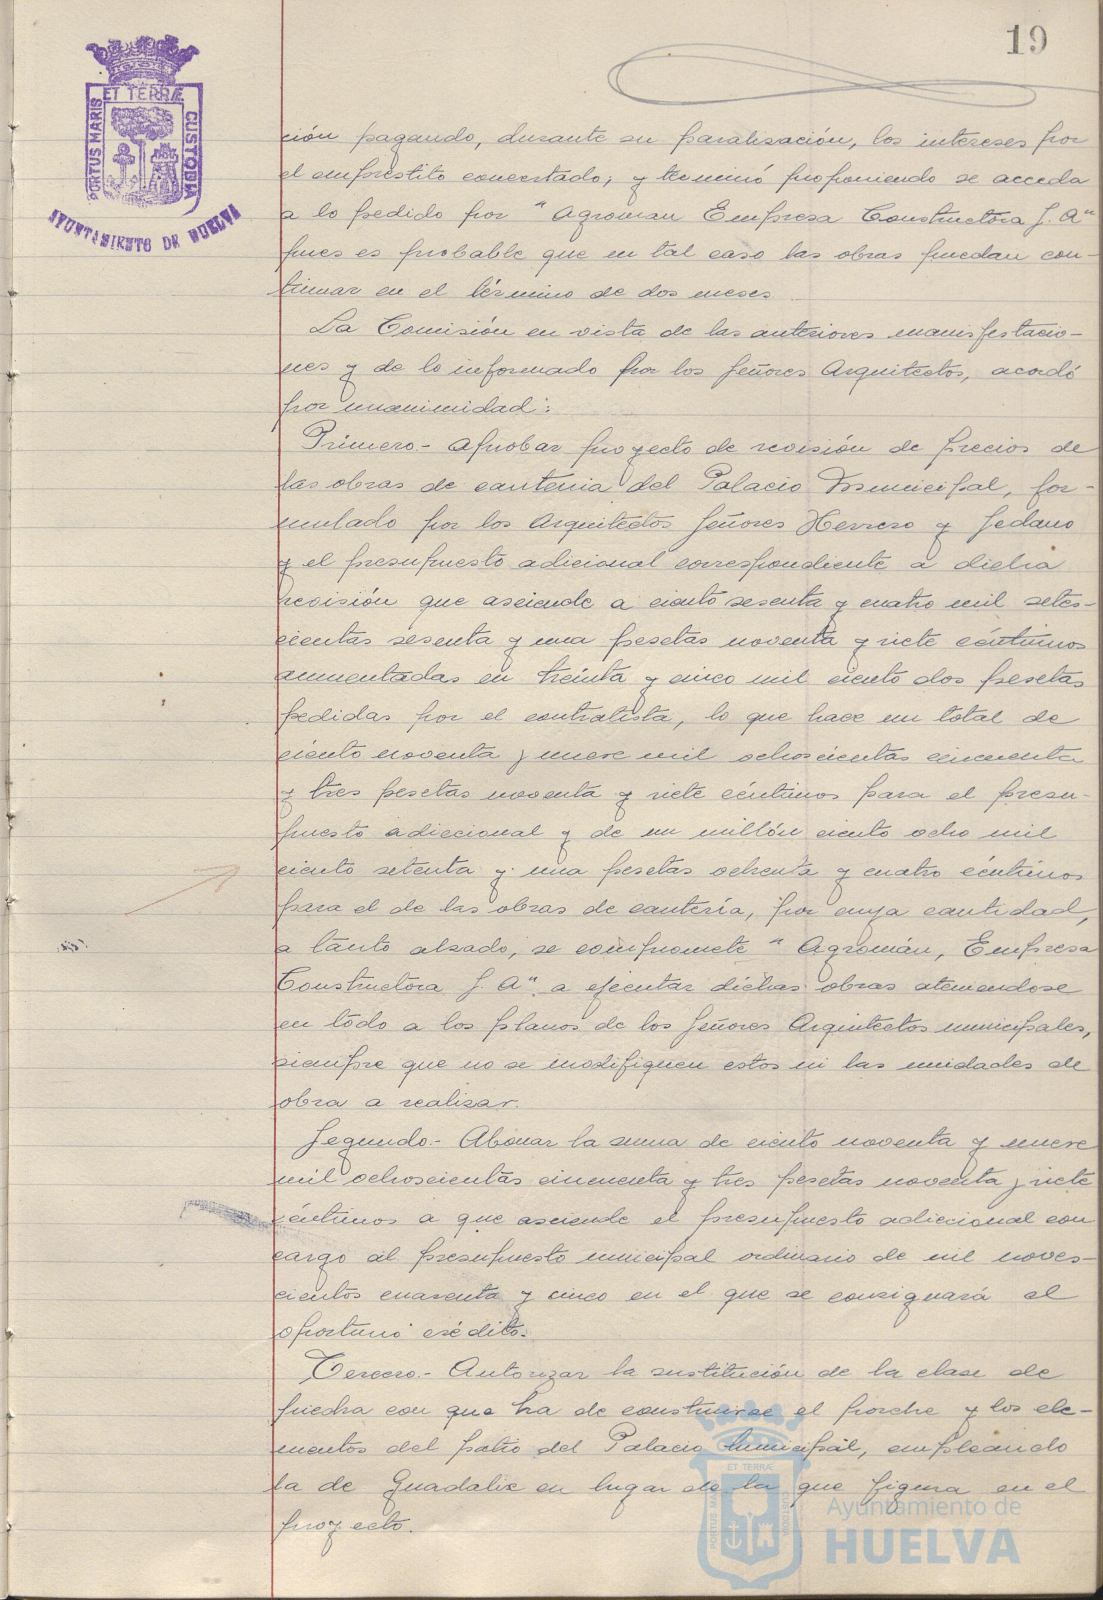 19
PORTUS MARIS ET TERRÆ CUSTODIA
AYUNTAMIENTO DE HUELVA
ción pagando, durante su paralización, los intereses por
el empréstito concertado; y terminó proponiendo se acceda
a lo pedido por "Agroman Empresa Constructora S. A"
pues es probable que en tal caso las obras puedan con-
tinuar en el término de dos meses.
La Comisión en vista de las anteriores manifestacio-
nes y de lo informado por los Señores Arquitectos, acordó
por unanimidad:
Primero.- Aprobar proyecto de revisión de precios de
las obras de cantería del Palacio Municipal, for-
mulado por los Arquitectos Señores Herrero y Sedano
y el presupuesto adicional correspondiente a dicha
revisión que asciende a ciento sesenta y cuatro mil sete-
cientas sesenta y una pesetas noventa y siete céntimos
aumentadas en treinta y cinco mil ciento dos pesetas
pedidas por el contratista, lo que hace un total de
ciento noventa y nueve mil ochocientas cincuenta
y tres pesetas noventa y siete céntimos para el presu-
puesto adiccional y de un millón ciento ocho mil
ciento setenta y una pesetas ochenta y cuatro céntimos
para el de las obras de cantería, por cuya cantidad,
a tanto alzado, se compromete "Agromán, Empresa
Constructora S. A". a ejecutar dichas obras ateniendose
en todo a los planos de los Señores Arquitectos municipales,
siempre que no se modifiquen estos ni las unidades de
obra a realizar.
Segundo.- Abonar la suma de ciento noventa y nueve
mil ochocientas cincuenta y tres pesetas noventa y siete
céntimos a que asciende el presupuesto adiccional con
cargo al presupuesto municipal ordinario de mil noves-
cientos cuarenta y cinco en el que se consignará el
oportuno crédito.
Tercero.- Autorizar la sustitución de la clase de
piedra con que ha de construirse el porche y los ele-
mentos del patio del Palacio Municipal, empleando
la de Guadalix en lugar de la que figura en el
proyecto.
ET TERRÆ
PORTUS MARIS
CUSTODIA
Ayuntamiento de
HUELVA